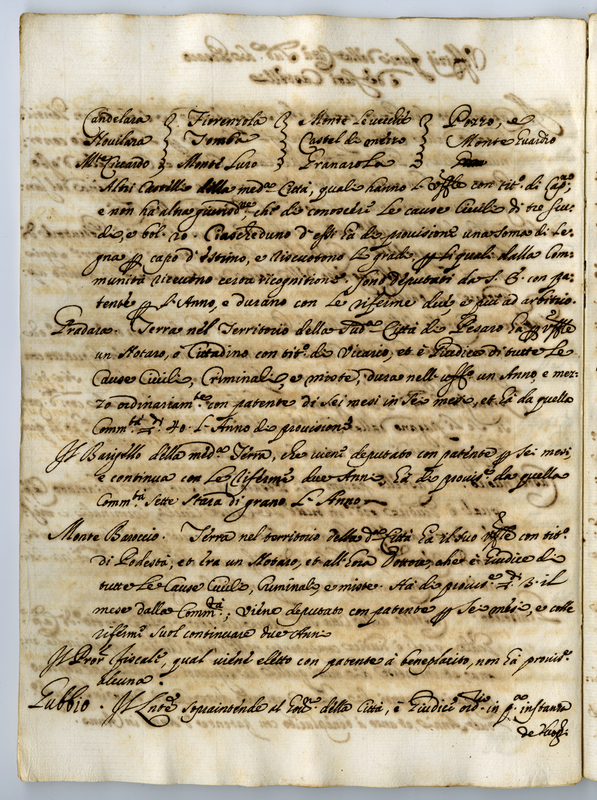 Candelara } Fiorenzola } e Monte Levecchie } Pozzo, e
Novilara } Tomba } Castel de mezzo } Monte Guardio
M.te Ciccardo } Monte Luro } Granarola }
Altri Castelli della med.ma Città, quali hanno l'Off.le con tit.o di Cap.no,
e non ha altra giurisd.ne, che di conoscere le cause Civili di tre scu-
di, e bol. 20. Ciascheduno d'essi ha di provisione una soma di le-
gna p capo d'estimo, e riscuotono le grade p li quali dalla Com-
munità ricevono certa ricognitione. Sono deputati da S. E. con pa-
tente p l'Anno, e durano con le rifferme due e più ad arbitrio.
Pradara. Terra nel Territorio della Sud.a Città di Pesaro ha p Off.le
un Notaro, o Cittadino con tit.o di Vicario, et è Giudice di tutte le
Cause Civili, Criminali, e miste, dura nell'uff.o un Anno e mez-
zo ordinariam.te con patente di sei mesi in sei mesi, et ha da quella
Comm.tà 40. l'Anno di provisione
Il Bargello della med.ma Terra, che viene deputato con patente p sei mesi
e continua con le rifferme due Anni, ha di provis.e da quella
Comm.tà sette stara di grano l'Anno
Monte Baroccio. Terra nel territorio della d.a Città ha il suo Off.le con tit.o
di Podestà, et era un Notaro, et all'hora Dottore, che è Giudice di
tutte le Cause Civili, Criminali e miste. Ha di provis.e 3. il
mese dalla Comm.tà; Viene deputato con patente p sei mesi, e colle
rifferme suol continuare due Anni
Il Pro.r fiscale, qual viene eletto con patente à beneplacito, non ha provis.e
alcuna.
Gubbio. Il Luogt.e sopraintende al Gov.o della Città, è Giudice ord.o in p.a instanza